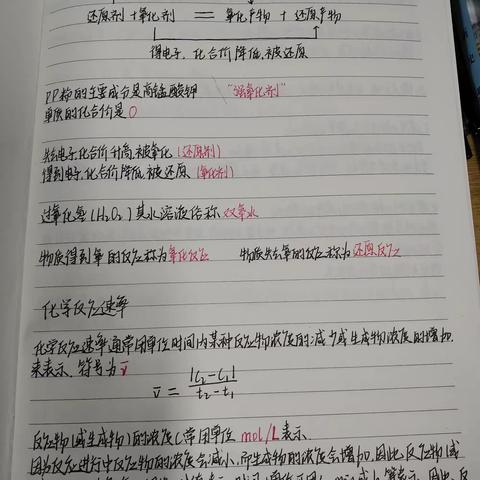 还原剂 + 氧化剂 = 氧化产物 + 还原产物
得电子、化合价降低、被还原
PP粉的主要成分是高锰酸钾 “强氧化剂”
单质的化合价是0
失去电子、化合价升高、被氧化(还原剂)
得到电子、化合价降低、被还原(氧化剂)
过氧化氢(H₂O₂)其水溶液俗称双氧水
物质得到氧的反应称为氧化反应 物质失去氧的反应称为还原反应
化学反应速率
化学反应速率通常用单位时间内某种反应物浓度的减少或生成物浓度的增加
来表示、符号为v̄
v̄ = |c₂-c₁| / t₂-t₁
反应物(或生成物)的浓度(常用单位mol/L表示
因为反应进行中反应物的浓度会减小、而生成物的浓度会增加、因此反应物(或